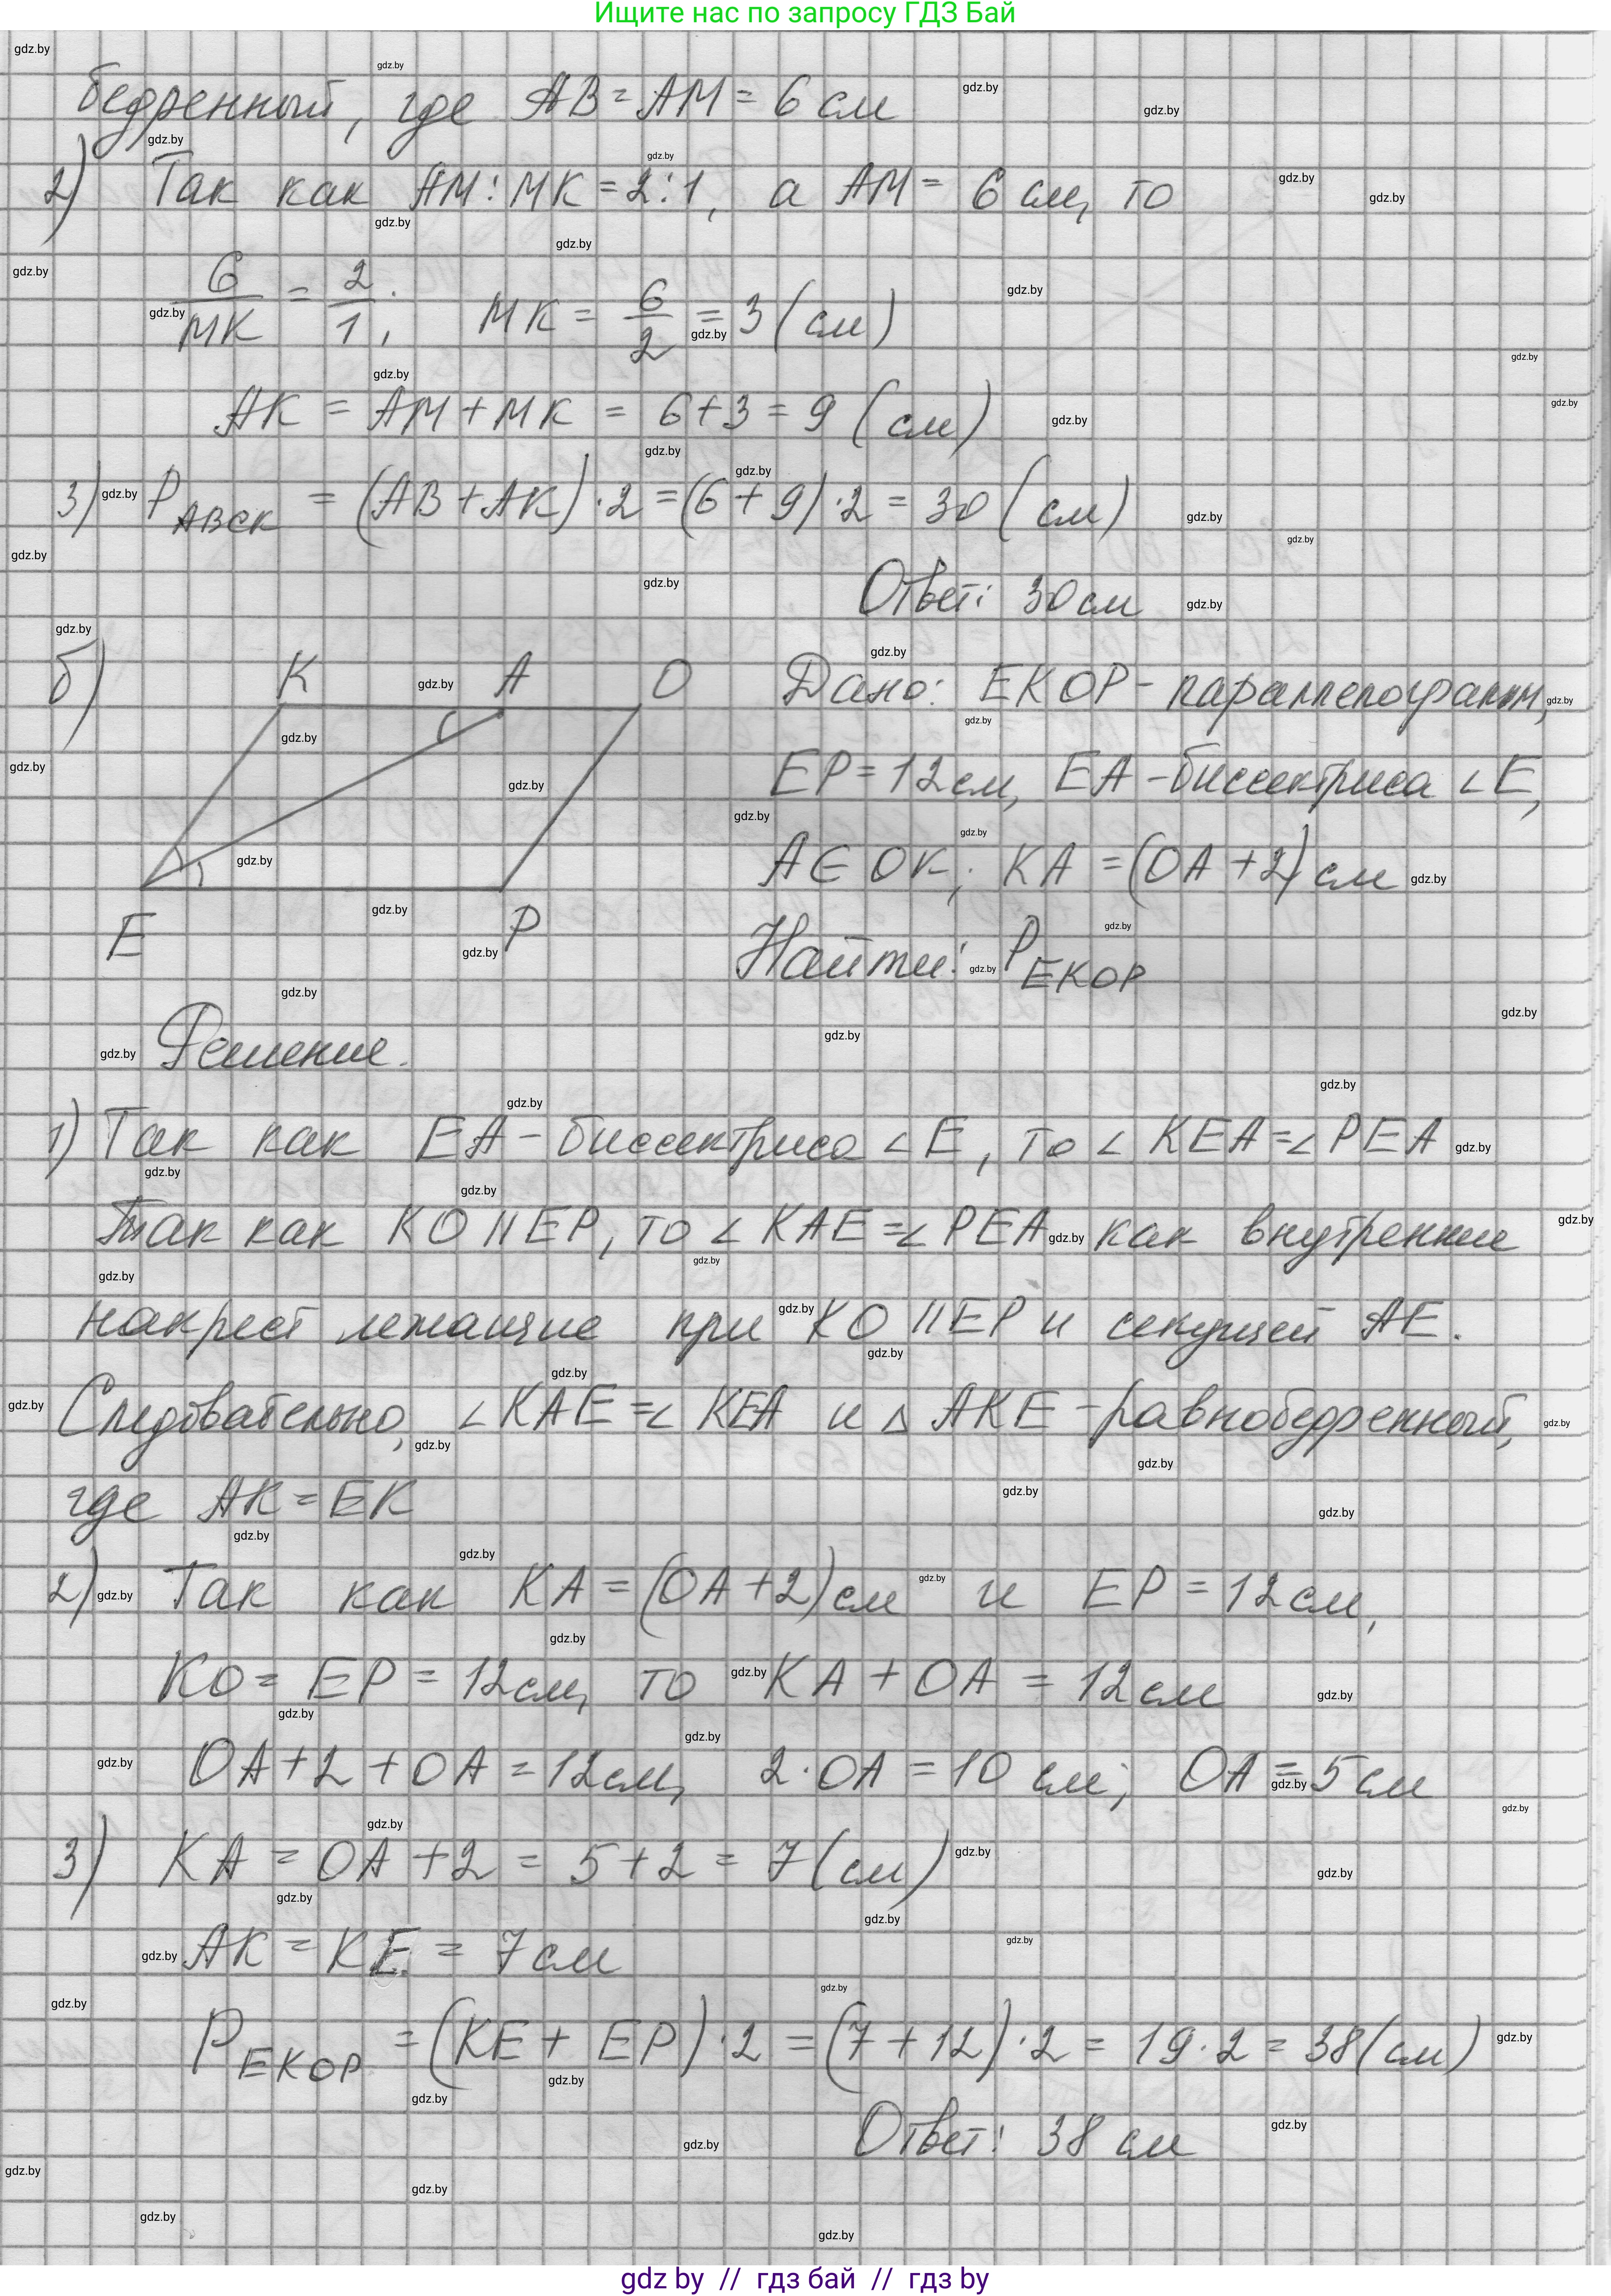 Ищите нас по запросу ГДЗ Бай
бедренный, где AB = AM = 6 см
2) Так как AM : MK = 2 : 1, а AM = 6 см, то
6/MK = 2/1; MK = 6/2 = 3 (см)
AK = AM + MK = 6 + 3 = 9 (см)
3) P ABCK = (AB + AK) · 2 = (6 + 9) · 2 = 30 (см)
Ответ: 30 см
б) K A O Дано: EKOP - параллелограмм,
EP = 12 см, EA - биссектриса ∠E,
A ∈ OK; KA = (OA + 2) см
E P Найти: P EKOP
Решение.
1) Так как EA - биссектриса ∠E, то ∠KEA = ∠PEA
Так как KO || EP, то ∠KAE = ∠PEA как внутренние
накрест лежащие при KO || EP и секущей AE.
Следовательно, ∠KAE = ∠KEA и △AKE - равнобедренный,
где AK = EK
2) Так как KA = (OA + 2) см и EP = 12 см,
KO = EP = 12 см, то KA + OA = 12 см
OA + 2 + OA = 12 см, 2 · OA = 10 см; OA = 5 см
3) KA = OA + 2 = 5 + 2 = 7 (см)
AK = KE = 7 см
P EKOP = (KE + EP) · 2 = (7 + 12) · 2 = 19 · 2 = 38 (см)
Ответ: 38 см
gdz by // гдз бай // гдз by